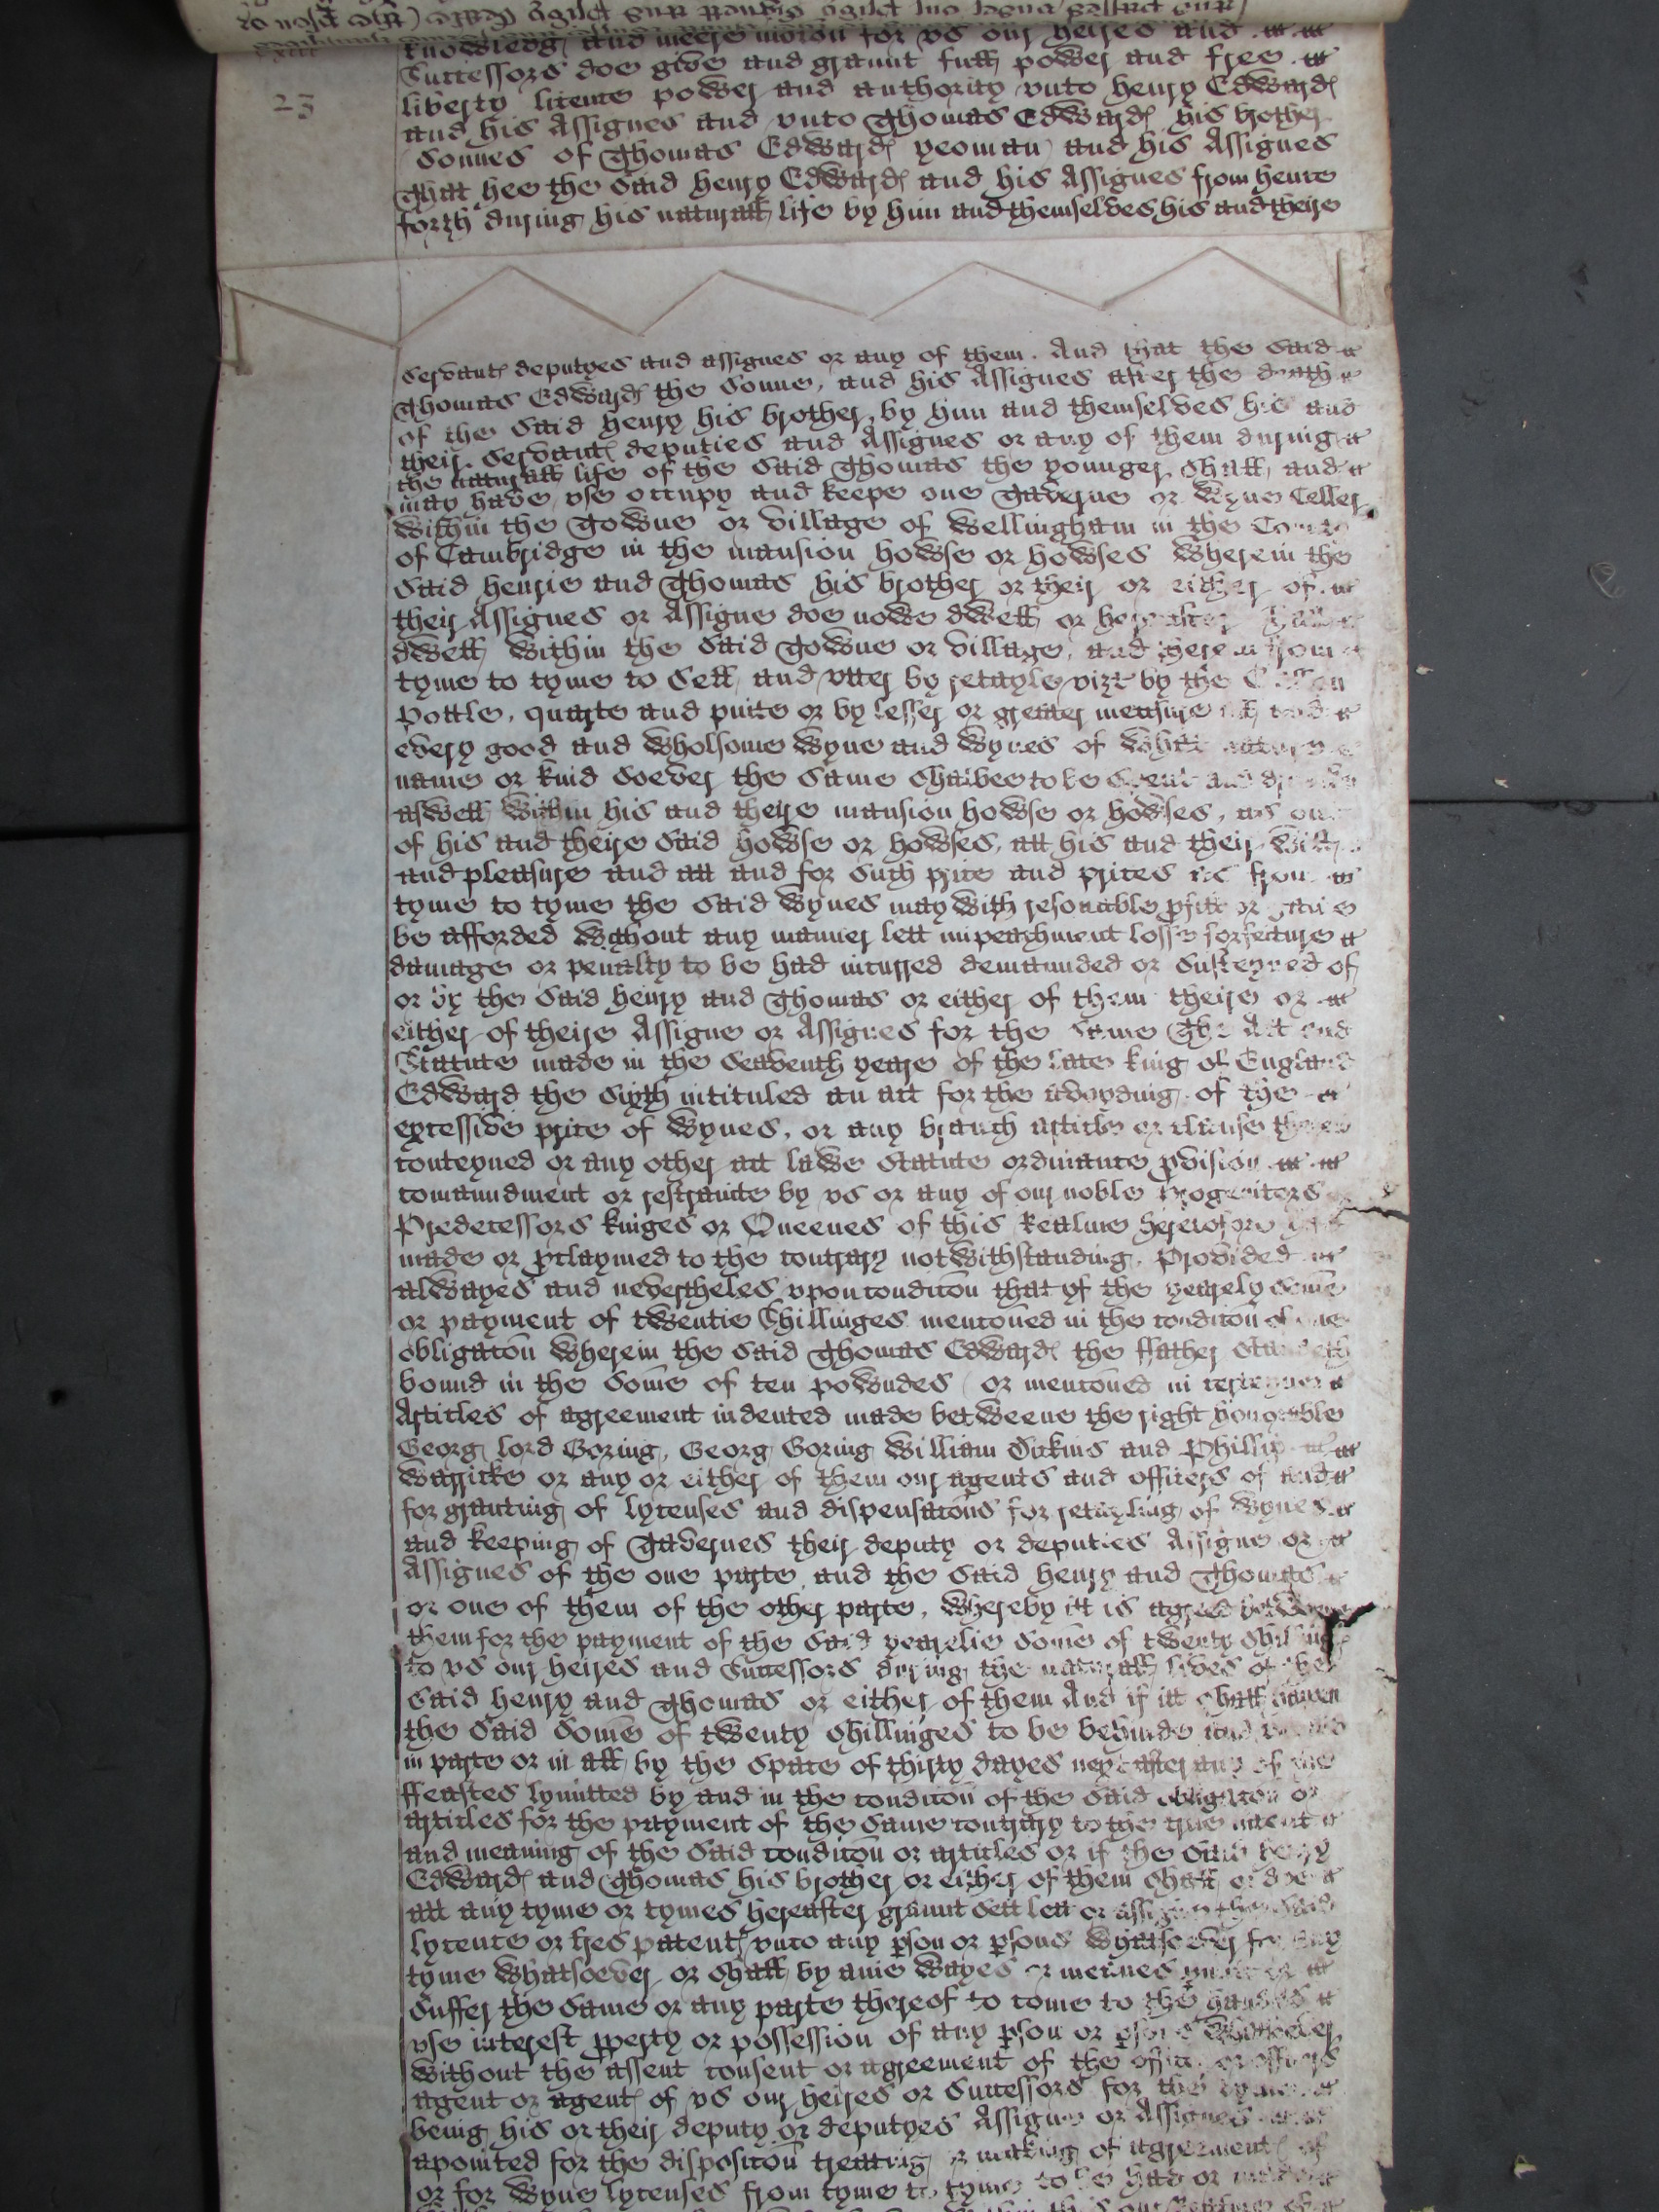 23
knowledg and meere moc̄on for vs our heires and
Successors doe give and graunt full power and free
liberty licence power and authority vnto Henry Edwards
and his Assignes and vnto Thomas Edwards his brother
Sonnes of Thomas Edwards yeoman and his Assignes
That hee the said Henry Edwards and his Assignes from hence
forth during his naturall life by him and themselves his and theire
Servants deputyes and assignes or any of them. And that the said
Thomas Edwards the Sonne, and his Assignes after the death
of the said Henry his brother by him and themselves his and
their Servants deputies and Assignes or any of them during
the naturall life of the said Thomas the younger shall and
may have vse occupy and keepe one Taverne or Wyne Celler
within the Towne or village of Wellingham in the
of Cambridge in the mansion howse or howses wherein the
said Henrie and Thomas his brother or their or either of
their Assignes or Assigne doe nowe dwell or hereafter shall
dwell within the said Towne or village, and therein from
tyme to tyme to sell and vtter by retayle vizt by the Gallon
Pottle, quarte and pinte or by lesser or greater measure all and
every good and wholsome wyne and wynes of what nature
name or kind soever the same shalbee to be spent and
aswell within his and theire mansion howse or howses, as out
of his and theire said howse or howses, att his and their will
and pleasure and att and for such price and prices as from
tyme to tyme the said wynes may with resonable pfitt or gaine
be afforded without any manner lett impeachment losse forfeiture
damage or penalty to be had incurred demaunded or susteyned of
or by the said Henry and Thomas or either of them theire or
either of theire Assigne or Assignes for the same The Act and
Statute made in the seaventh yeare of the late king of England
Edward the sixth intituled an act for the avoyding of the
excessive price of wynes, or any branch article or clause therein
conteyned or any other act lawe statute ordinance pvision
comaundment or restrainte by vs or any of our noble Progenitors
Predecessors kinges or Queenes of this Realme heretofore
made or pclaymed to the contrary notwithstanding. Provided
alwayes and nevertheles vpon condic̄on that if the yearely some
or payment of twentie Shillinges menc̄oned in the condic̄on of one
obligac̄on wherein the said Thomas Edwards the ffather standeth
bound in the Some of ten powndes or menc̄oned in
Articles of agreement indented made betweene the right honorable
Georg lord Goring, Georg Goring William Dickins and Phillip
Warricke or any or either of them our agents and officers of and
for granting of lycenses and dispensac̄ons for retayling of wynes
and keeping of Tavernes their deputy or deputies Assigne or
Assignes of the one parte and the said Henry and Thomas
or one of them of the other parte, whereby itt is agreed betweene
them for the payment of the said yearelie Some of twenty shillings
to vs our heires and Successors during the naturall lives of the
said Henry and Thomas or either of them And if itt shall happen
the said Some of twenty shillinges to be behinde and
in parte or in all by the space of thirty dayes next after any of the
ffeastes lymitted by and in the condic̄on of the said obligac̄on or
articles for the payment of the same contrary to the true intent
and meaning of the said condic̄on or articles or if the said Henry
Edwards and Thomas his brother or either of them shall or doe
att any tyme or tymes hereafter graunt sett lett or assigne the said
lycence or l̄res patents vnto any pson or psons whatsoever for any
tyme whatsoever or shall by anie wayes or meanes
suffer the same or any parte thereof to come to the handes
vse interest pperty or possession of any pson or psons whatsoever
without the assent consent or agreement of the officer or officers
agent or agents of vs our heires or Successors for the tyme
being his or their deputy or deputyes Assigne or Assignes
apointed for the disposic̄on treating or making of agreements of
or for wyne lycenses from tyme to tyme to be had or